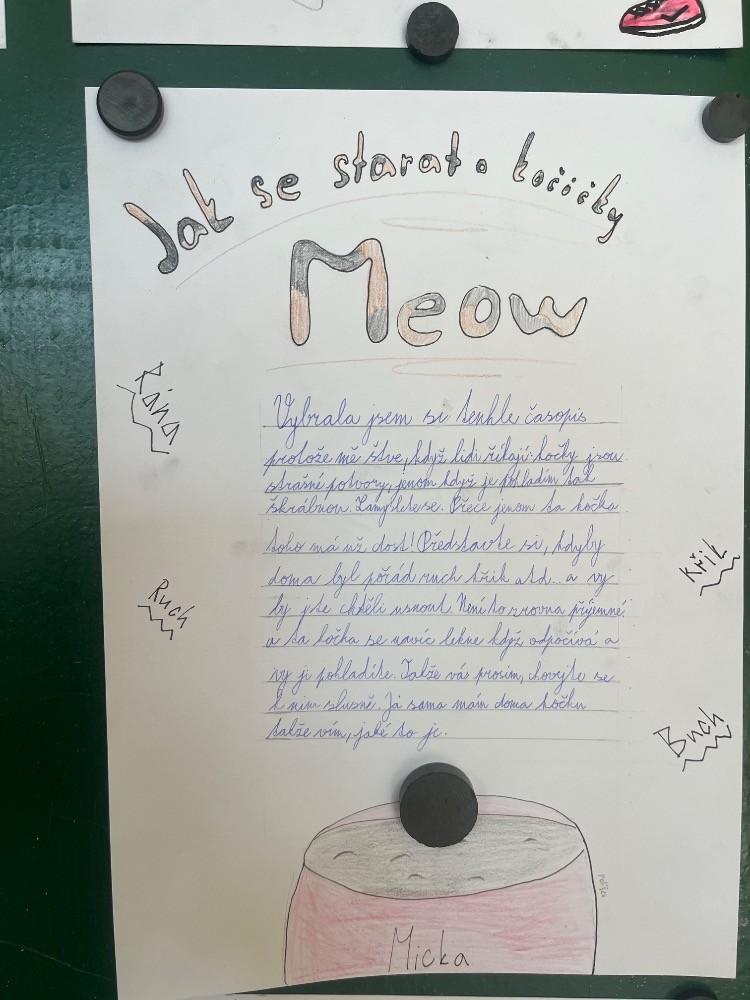 Jak se starat o kočičky
Meow
Rána
Vybrala jsem si tenhle časopis
protože mě štve, když lidi říkají: kočky jsou
strašné potvory, jenom když je pohladím tak
škrábnou. Zamyslete se. Přece jenom ta kočka
toho má už dost! Představte si, kdyby
doma byl pořád ruch křik atd.. a vy
by jste chtěli usnout. Není to zrovna příjemné.
a ta kočka se navíc lekne když odpočívá a
vy ji pohladíte. Takže vás prosím, chovejte se
k nim slušně. Já sama mám doma kočku
takže vím, jaké to je.
Křik
Ruch
Buch
pelíšek
Micka